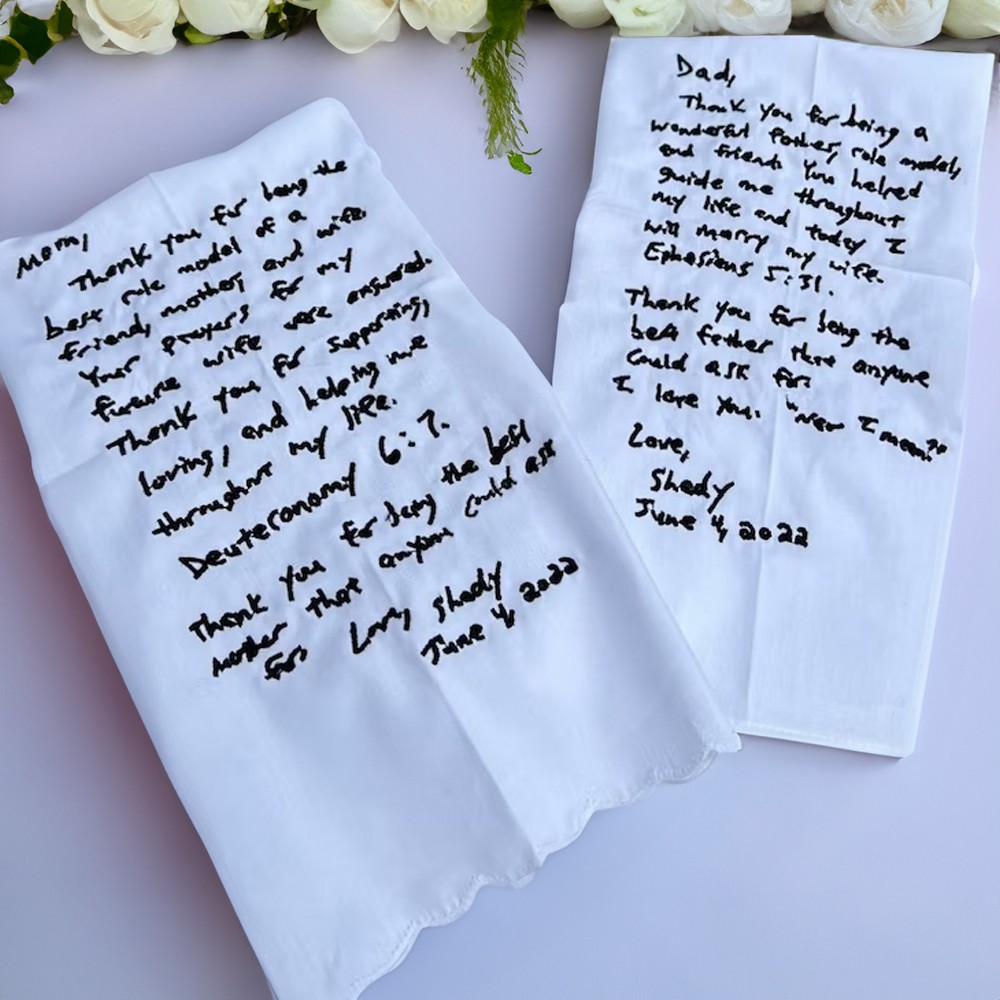 Mom,
Thank you for being the
best role model of a
friend, mother, and wife.
Your prayers for my
future wife were answered.
Thank you for supporting,
loving, and helping me
throughout my life.
Deuteronomy 6:7.
Thank you for being the best
mother that anyone could ask
for.
Love, Shedy
June 4, 2022
Dad,
Thank you for being a
wonderful father, role model,
and friend. You helped
guide me throughout
my life and today I
will marry my wife.
Ephesians 5:31.
Thank you for being the
best father that anyone
could ask for.
I love you. "Naer I mean?"
Love,
Shedy
June 4, 2022